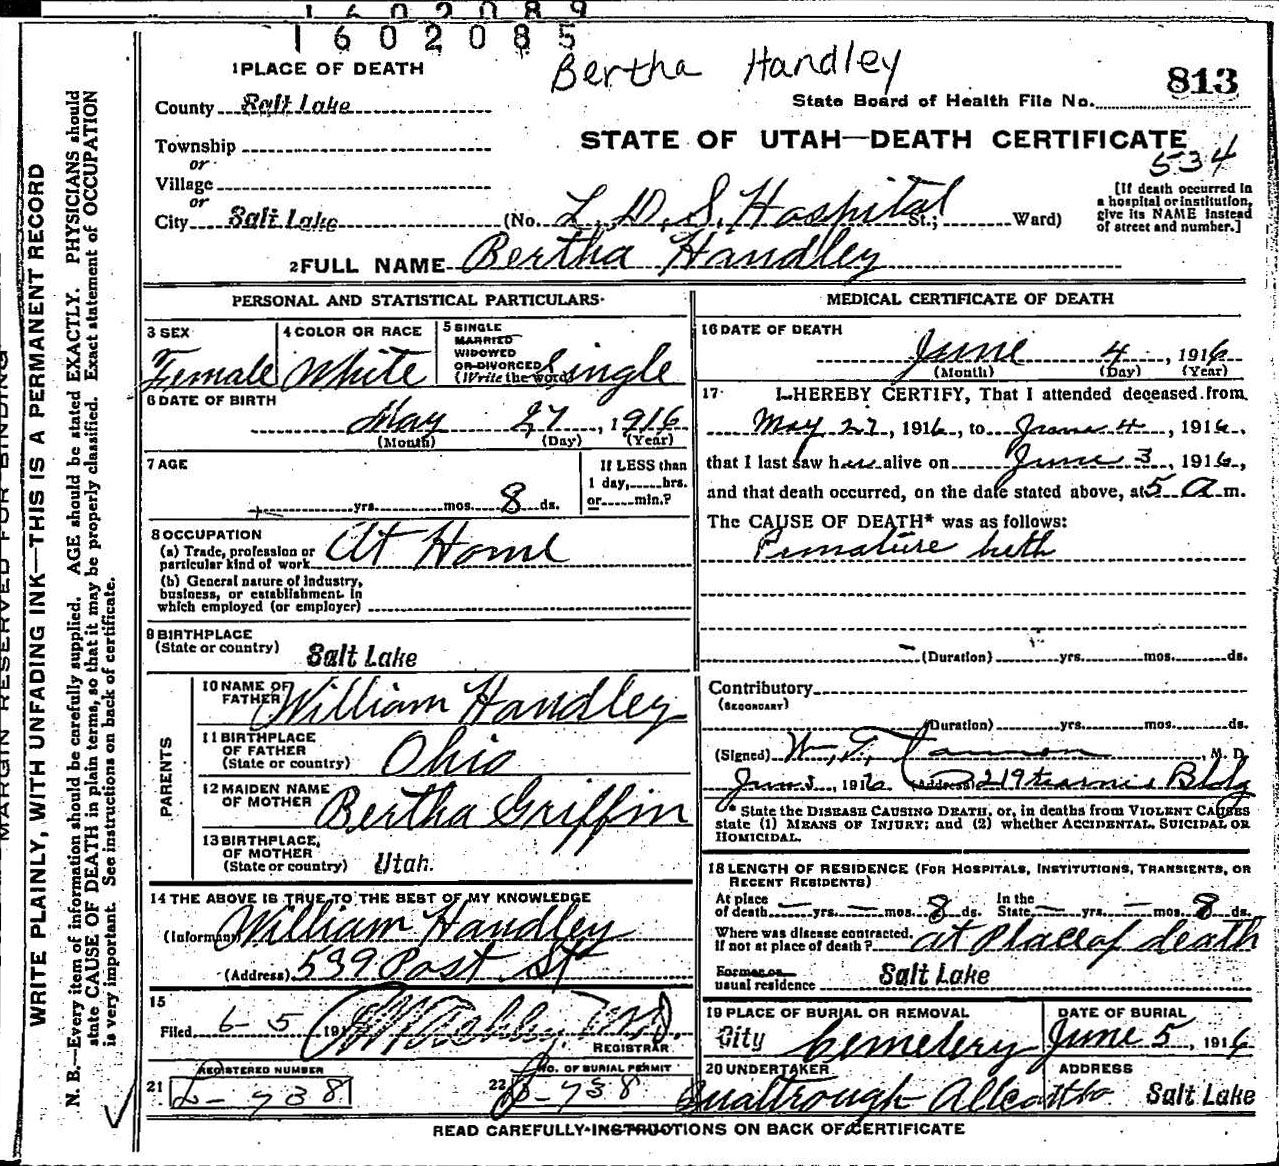 1602089
1602085
Bertha Handley
813
1 PLACE OF DEATH
County Salt Lake
State Board of Health File No.
Township
or
Village
or
City Salt Lake
STATE OF UTAH—DEATH CERTIFICATE
534
(No. L. D. S. Hospital St.; Ward)
[If death occurred in
a hospital or institution,
give its NAME instead
of street and number.]
2 FULL NAME Bertha Handley
PERSONAL AND STATISTICAL PARTICULARS
3 SEX
Female
4 COLOR OR RACE
White
5 SINGLE
MARRIED
WIDOWED
OR DIVORCED
(Write the word) Single
6 DATE OF BIRTH
May 27, 1916
(Month) (Day) (Year)
7 AGE
yrs. mos. 8 ds.
If LESS than
1 day, hrs.
or min.?
8 OCCUPATION
(a) Trade, profession or
particular kind of work At Home
(b) General nature of industry,
business, or establishment in
which employed (or employer)
9 BIRTHPLACE
(State or country) Salt Lake
PARENTS
10 NAME OF
FATHER William Handley
11 BIRTHPLACE
OF FATHER
(State or country) Ohio
12 MAIDEN NAME
OF MOTHER Bertha Griffin
13 BIRTHPLACE
OF MOTHER
(State or country) Utah.
14 THE ABOVE IS TRUE TO THE BEST OF MY KNOWLEDGE
(Informant) William Handley
(Address) 539 Post St
15
Filed 6-5, 191
REGISTRAR
REGISTERED NUMBER
21 L-738
NO. OF BURIAL PERMIT
22 B-738
MEDICAL CERTIFICATE OF DEATH
16 DATE OF DEATH
June 4, 1916
(Month) (Day) (Year)
17 I HEREBY CERTIFY, That I attended deceased from
May 27, 1916, to June 4, 1916,
that I last saw her alive on June 3, 1916,
and that death occurred, on the date stated above, at 5 a m.
The CAUSE OF DEATH* was as follows:
Premature birth
(Duration) yrs. mos. ds.
Contributory
(SECONDARY)
(Duration) yrs. mos. ds.
(Signed) W. T. Cannon, M. D.
June 5, 1916 (Address) 219 Kearns Bldg
* State the DISEASE CAUSING DEATH, or, in deaths from VIOLENT CAUSES
state (1) MEANS OF INJURY; and (2) whether ACCIDENTAL, SUICIDAL OR
HOMICIDAL.
18 LENGTH OF RESIDENCE (FOR HOSPITALS, INSTITUTIONS, TRANSIENTS, OR
RECENT RESIDENTS)
At place
of death — yrs. — mos. 8 ds.
In the
State — yrs. — mos. 8 ds.
Where was disease contracted,
if not at place of death? at place of death
Former or
usual residence Salt Lake
19 PLACE OF BURIAL OR REMOVAL
City Cemetery
DATE OF BURIAL
June 5, 1916
20 UNDERTAKER
ADDRESS
Salt Lake
READ CAREFULLY INSTRUCTIONS ON BACK OF CERTIFICATE
MARGIN RESERVED FOR BINDING
WRITE PLAINLY, WITH UNFADING INK—THIS IS A PERMANENT RECORD
N. B.—Every item of information should be carefully supplied. AGE should be stated EXACTLY. PHYSICIANS should
state CAUSE OF DEATH in plain terms, so that it may be properly classified. Exact statement of OCCUPATION
is very important. See instructions on back of certificate.